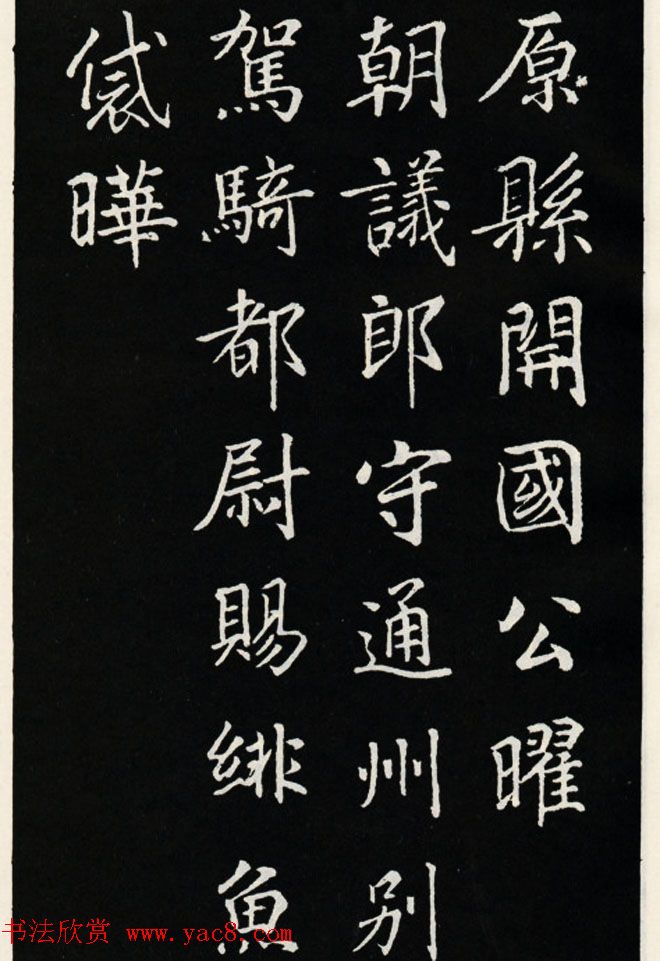 原縣開國公曜
朝議郎守通州別
駕騎都尉賜緋魚
袋曄
书法欣赏 www.yac8.com